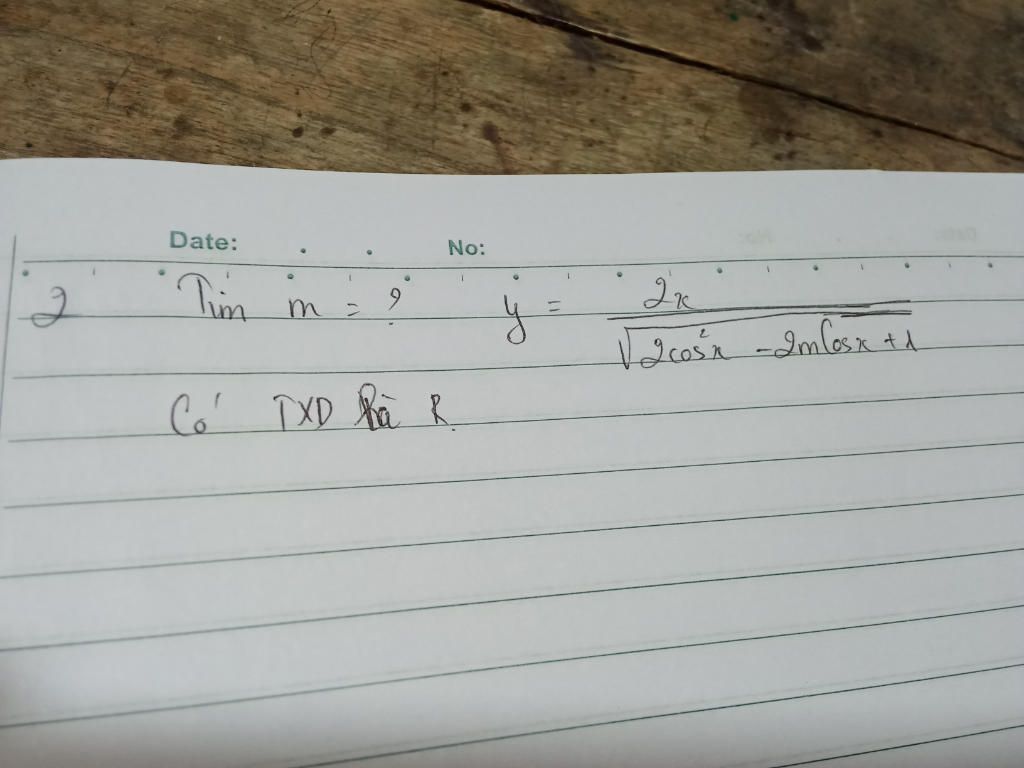 Date: No:
2 Tìm m = ? y = 2x / √(2cos²x - 2mcosx + 1)
Có TXD là R.